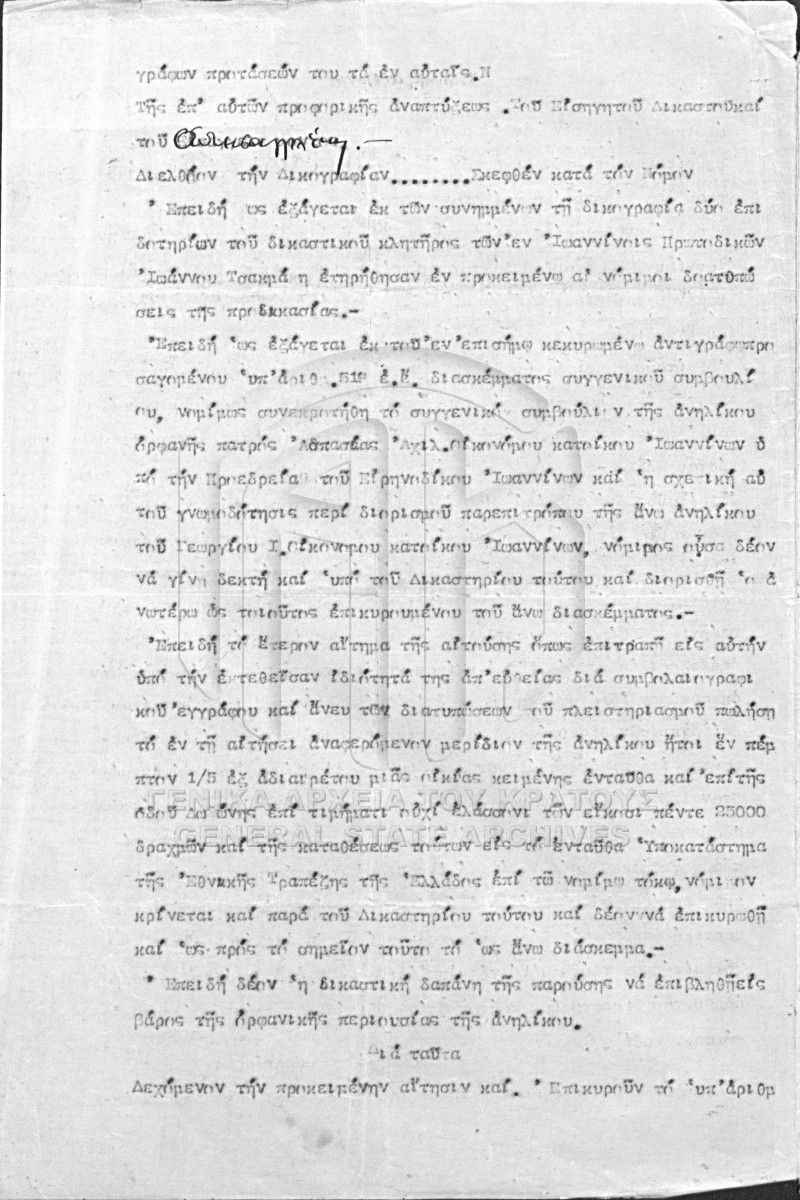 γράφων προτάσεών του τά ἐν αὐταῖς.Ν
Τῆς ἐπ' αὐτῶν προφορικῆς ἀναπτύξεως .Τοῦ Εἰσηγητοῦ Δικαστοῦκαί
τοῦ
Διελθόν τήν Δικογραφίαν........Σκεφθέν κατά τόν Νόμον
' Επειδή ως ἐξάγεται ἐκ τῶν συνημμένων τῇ δικογραφίᾳ δύο ἐπι
δοτηρίων τοῦ δικαστικοῦ κλητῆρος τῶν'εν 'Ιωαννίνοις Πρωτοδικῶν
'Ιωάννου Τσακμά η ἐτηρήθησαν ἐν προκειμένῳ αἱ νόμιμοι διατυπώ
σεις τῆς προδικασίας.-
'Επειδή 'ως ἐξάγεται ἐκ τοῦ'εν'επισήμῳ κεκυρωμένῳ ἀντιγράφῳπρο
σαγομένου 'υπ'ἀριθ. ἐ.ἔ. διασκέμματος συγγενικοῦ συμβουλί
ου, νομίμως συνεκροτήθη τό συγγενικόν συμβούλιον τῆς ἀνηλίκου
ὀρφανῆς πατρός 'Ασπασίας 'Αχιλ.Οἰκονόμου κατοίκου 'Ιωαννίνων ὑ
πό τήν Προεδρεία τοῦ Εἰρηνοδίκου 'Ιωαννίνων καί 'η σχετική αὐ
τοῦ γνωμοδότησις περί διορισμοῦ παρεπιτρόπου τῆς ἄνω ἀνηλίκου
τοῦ Γεωργίου Ι.Οἰκονόμου κατοίκου 'Ιωαννίνων, νόμιμος οὖσα δέον
νά γίνῃ δεκτή καί 'υπό τοῦ Δικαστηρίου τούτου καί διορισθῇ 'ο ἀ
νωτέρω ὡς τοιοῦτος ἐπικυρουμένου τοῦ ἄνω διασκέμματος.-
'Επειδή τό ἕτερον αἴτημα τῆς αἰτούσης ὅπως ἐπιτραπῇ εἰς αὐτήν
ὑπό τήν ἐκτεθεῖσαν ἰδιότητά της ἀπ'εὐθείας διά συμβολαιογραφι
κοῦ'εγγράφου καί ἄνευ τῶν διατυπώσεων τοῦ πλειστηριασμοῦ πωλήσῃ
τό ἐν τῇ αἰτήσει ἀναφερόμενον μερίδιον τῆς ἀνηλίκου ἤτοι ἕν πέμ
πτον 1/5 ἐξ ἀδιαιρέτου μιᾶς οἰκίας κειμένης ἐνταῦθα καί'επίτῆς
ὁδοῦ Δωδώνης ἐπί τιμήματι οὐχί ἐλάσσονι τῶν εἴκοσι πέντε 25000
δραχμῶν καί τῆς καταθέσεως τούτων εἰς τό ἐνταῦθα Ὑποκατάστημα
τῆς 'Εθνικῆς Τραπέζης τῆς 'Ελλάδος ἐπί τῷ νομίμῳ τόκῳ, νόμιμον
κρίνεται καί παρά τοῦ Δικαστηρίου τούτου καί δέον νά ἐπικυρωθῇ
καί 'ως πρός τό σημεῖον τοῦτο τό 'ως ἄνω διάσκεμμα.-
' Επειδή δέον 'η δικαστική δαπάνη τῆς παρούσης νά ἐπιβληθῇεἰς
βάρος τῆς ὀρφανικῆς περιουσίας τῆς ἀνηλίκου.
Διά ταῦτα
Δεχόμενον τήν προκειμένην αἴτησιν καί. ' Επικυροῦν τό 'υπ'ἀριθμ
ΓΕΝΙΚΑ ΑΡΧΕΙΑ ΤΟΥ ΚΡΑΤΟΥΣ
GENERAL STATE ARCHIVES